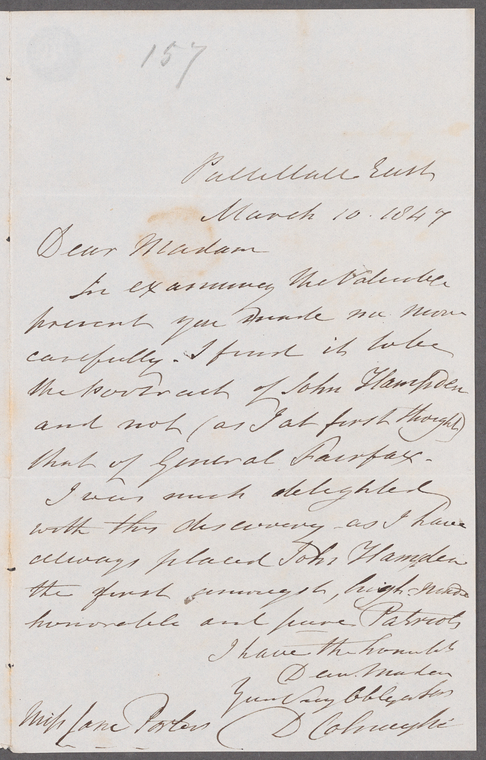 157
Pall Mall East
March 10. 1847
Dear Madam
In examining the Valuable
present you made me more
carefully. I find it to be
the Portrait of John Hampden
and not (as I at first thought)
that of General Fairfax.
I was much delighted
with this discovery as I have
always placed John Hamden
the first amongst, high-minded
honorable and pure Patriots
I have the honor to be
Dear Madam
Your very Obligated
D Colnaghi
Miss Jane Porter